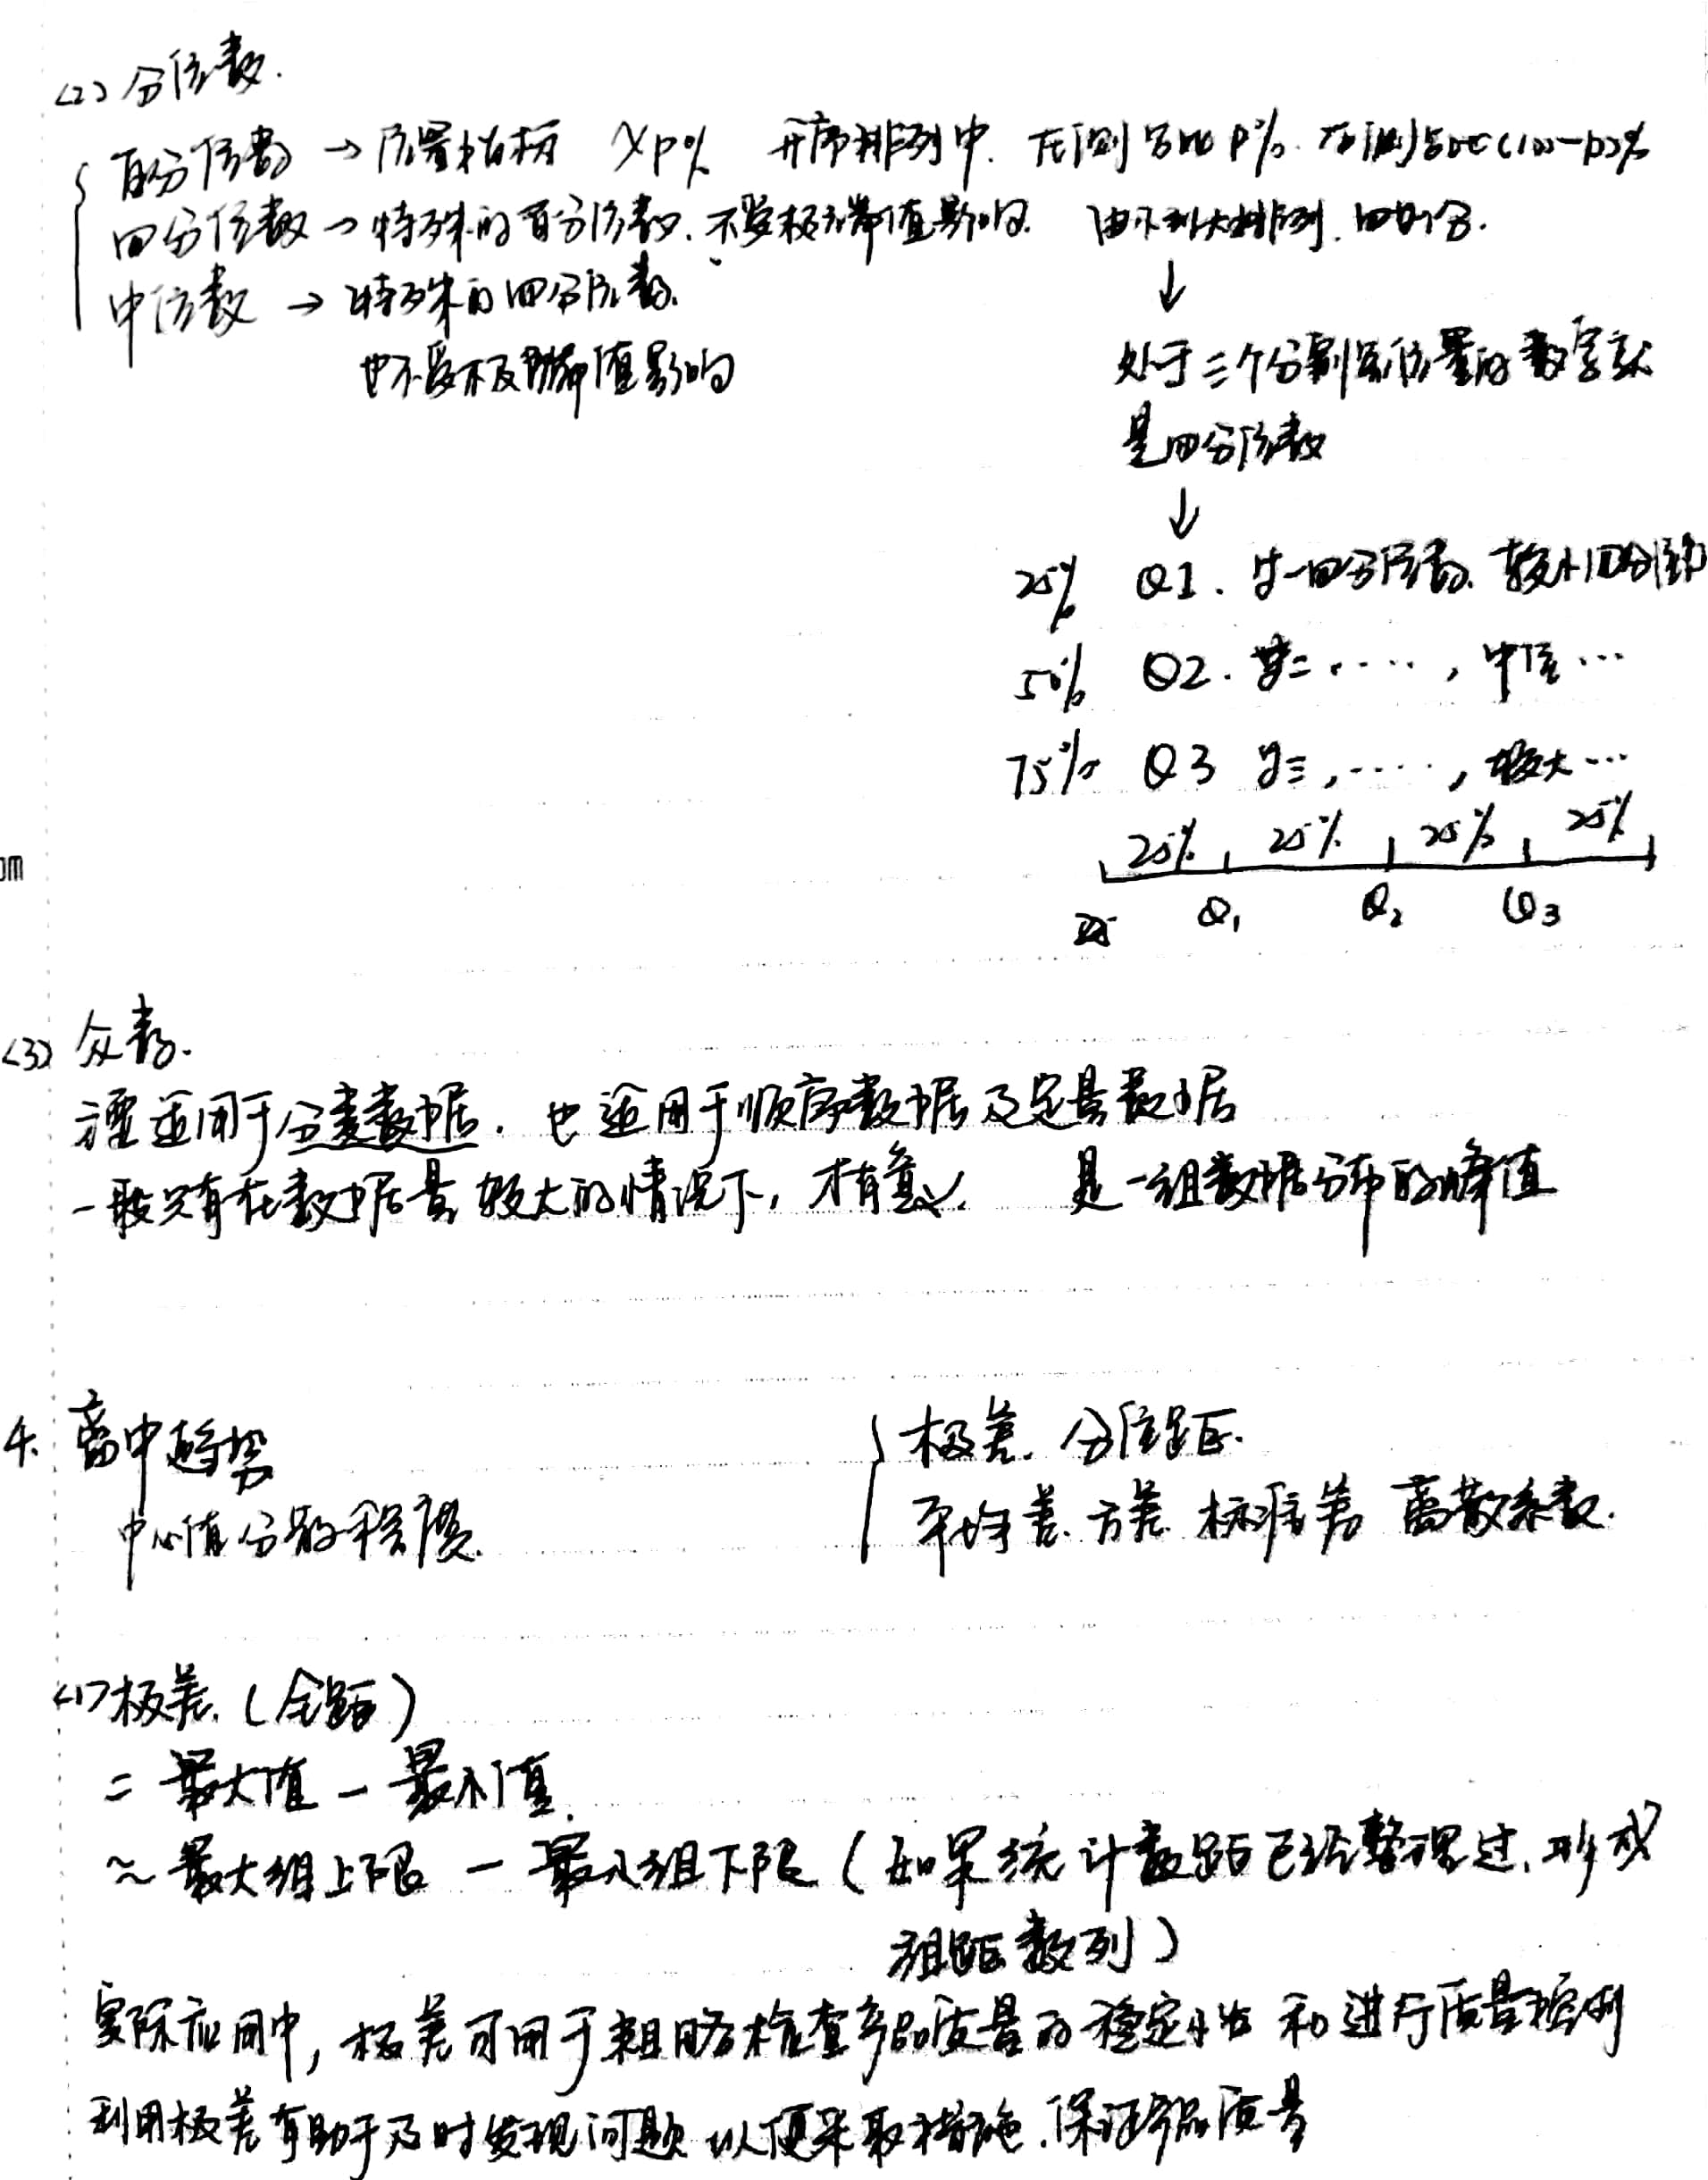 <2> 分位数.
百分位数 → 位置指标 Xp% 升序排列中. 左侧占比 p%. 右侧占比(100-p)%
四分位数 → 特殊的百分位数. 不受极端值影响. 由小到大排列. 四等分.
中位数 → 特殊的四分位数. ↓
也不受极端值影响 处于三个分割点位置的数字就
是四分位数
↓
25% Q1. 第一四分位数. 较小四分位数
50% Q2. 第二 ....., 中位 ...
75% Q3 第三, ....., 较大 ...
25% 25% 25% 25%
Q₁ Q₂ Q₃
om
<3> 众数.
主要适用于分类数据. 也适用于顺序数据及定量数据
一般只有在数据量较大的情况下, 才有意义. 是一组数据分布的峰值
4. 离中趋势 极差. 分位距.
中心值分散程度. 平均差. 方差 标准差 离散系数.
<1> 极差. (全距)
= 最大值 - 最小值.
~ 最大组上限 - 最小组下限 ( 如果统计数距已经整理过, 形成
组距数列 )
实际应用中, 极差可用于粗略检查产品质量的稳定性 和进行质量控制
利用极差有助于及时发现问题 以便采取措施. 保证产品质量